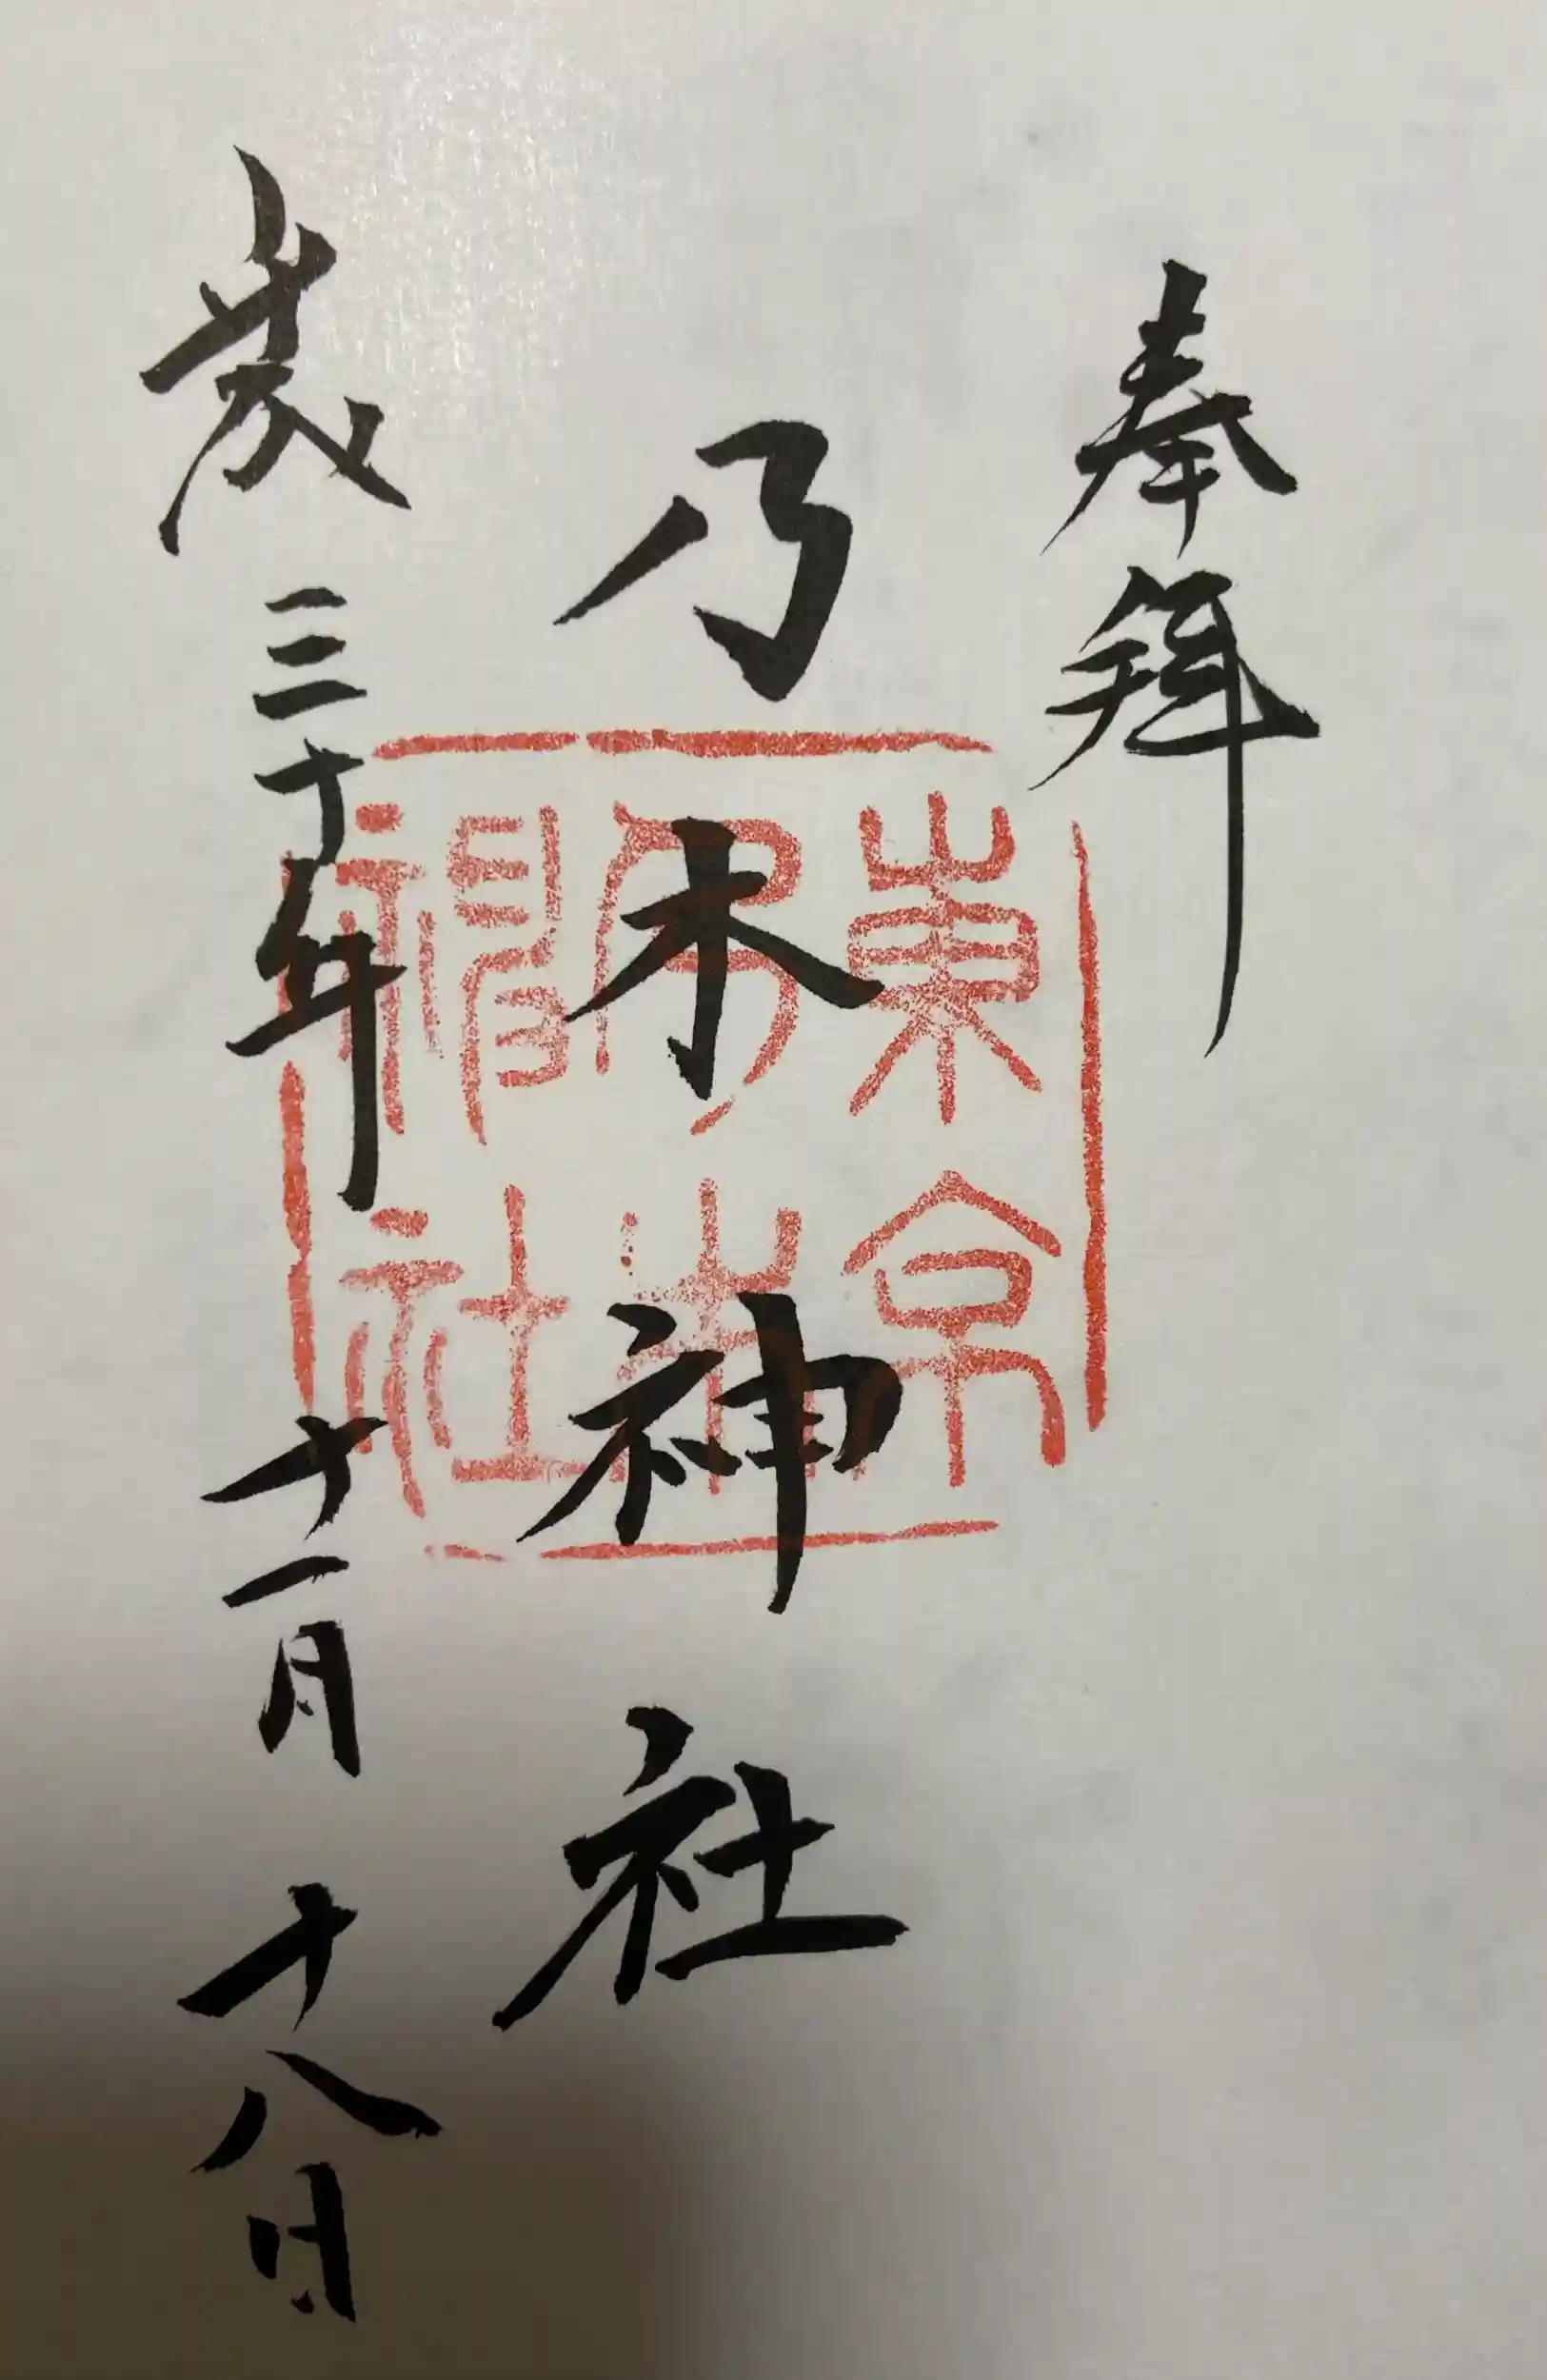 奉拝
乃木神社
歳三十年十一月十八日
東京
乃木
神社